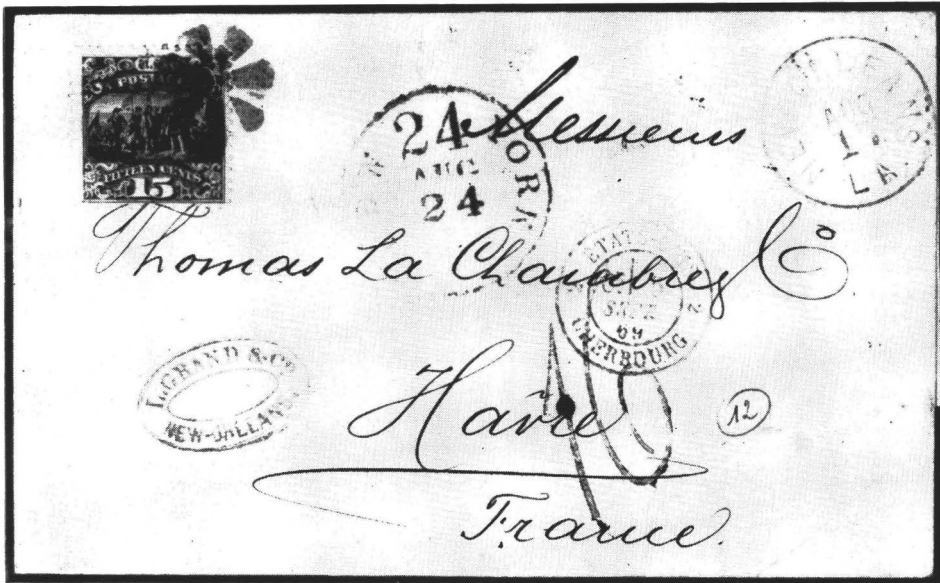 POSTAGE
FIFTEEN CENTS
15
24
AUG
24
Messieurs
Thomas La Chambre & Co
ETAT
SEPT
69
CHERBOURG
2
LEGRAND & Co
NEW-ORLEANS
Havre
12
France.
LA